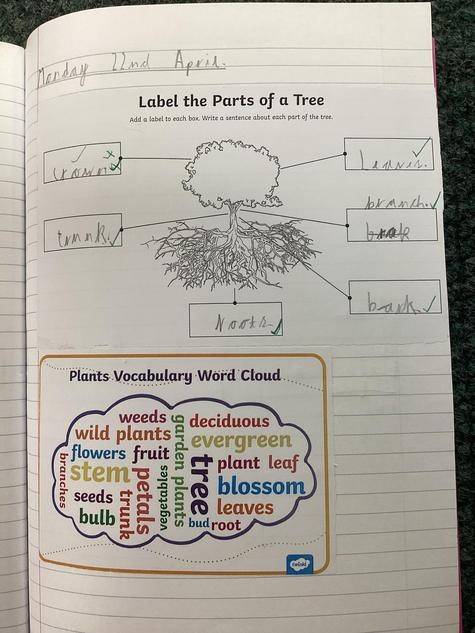 Monday 22nd April.
Label the Parts of a Tree
Add a label to each box. Write a sentence about each part of the tree.
crown.
leaves.
branch.
trunk.
bark.
roots.
Plants Vocabulary Word Cloud
weeds
deciduous
wild plants
garden plants
evergreen
flowers
fruit
tree
plant
leaf
branches
stem
petals
vegetables
blossom
seeds
trunk
leaves
bulb
bud
root
twinkl